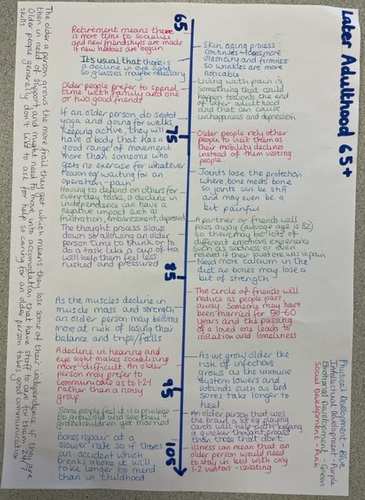 Later Adulthood 65+
Physical Development - Blue
Intellectual Development - Purple
Emotional Development - Green
Social Development - Pink
65
75
85
95
105
Retirement means there
is more time to socialise
and new friendships are made
if new hobbies are begin
It's usual that there is
a decline in eye sight
so glasses may be necessary
Older people prefer to spend
time with family and one
or two good friends
If an older person do seated
yoga and going for walks
keeping active, they will
have a body that has a
good range of movement
more than someone who
gets no exercise for whatever
reason eg waiting for an
operation - pain
Having to depend on others for
everyday tasks, a decline in
independence can have a
negative impact such as
frustration, embarrassment, depressed
The thought process slows
down so allowing an older
person time to think or to
do a task like a cup of tea
will help them feel less
rushed and pressured
As the muscles decline in
muscle mass and strength
an older person may become
more at risk of losing their
balance and trips/falls
A decline in hearing and
eye sight makes socialising
more difficult. An older
person may prefer to
communicate as to 1-2-1
rather than a noisy
group
Some people feel it is a privilege
to grow old and see their
grandchildren get married
Bones repair at a
slower rate so if there is
an accident which
breaks bone it will
take longer to mend
than in childhood
Skin aging process
continues - loses more
elasticity and firmness
so wrinkles are more
noticeable
Living with pain is
something that could
happen towards the end
of later adulthood
and that can cause
unhappiness and depression
Older people rely other
people to visit them as
their mobility declines
instead of them visiting
people
Joints lose the protection
where bones meet bone
so joints can be stiff
and may even be a
bit painful
A partner or friends will
pass away (average age is 82)
so there may be lots of
different emotions experience
such as sadness or even
relieved if their loved one was in pain
Need more calcium in the
diet as bones may lose a
bit of strength
The circle of friends will
reduce as people pass
away. Someone may have
been married for 50-60
years and the passing
of a loved one leads to
isolation and loneliness
As we grow older the
risk of infections
great as the immune
system lowers and
wounds such as bed
sores take longer to
heal
An older person that uses
the brain a lot eg playing
cards will help with keeping
a quicker thought process
than those that don't
Illness can mean that an
older person would need
to stay in bed with only
1-2 visitors - isolating
The older a person grows the more frail they get which means they lose some of their independence if they are
then in need of support and might need to move into accommodation where they have staff to care for them 24/7
Older people generally don't like to ask for help so caring for an older person takes good communication
skills